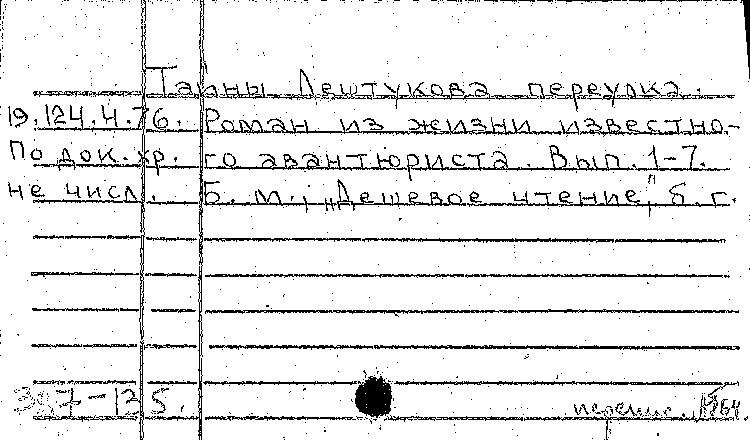 Тайны Лештукова переулка.
19.124.4.76. Роман из жизни известно-
По док. хр. го авантюриста. Вып. 1-7.
не числ. Б. м., „Дешевое чтение," б. г.
387-125. перепис. 1964.